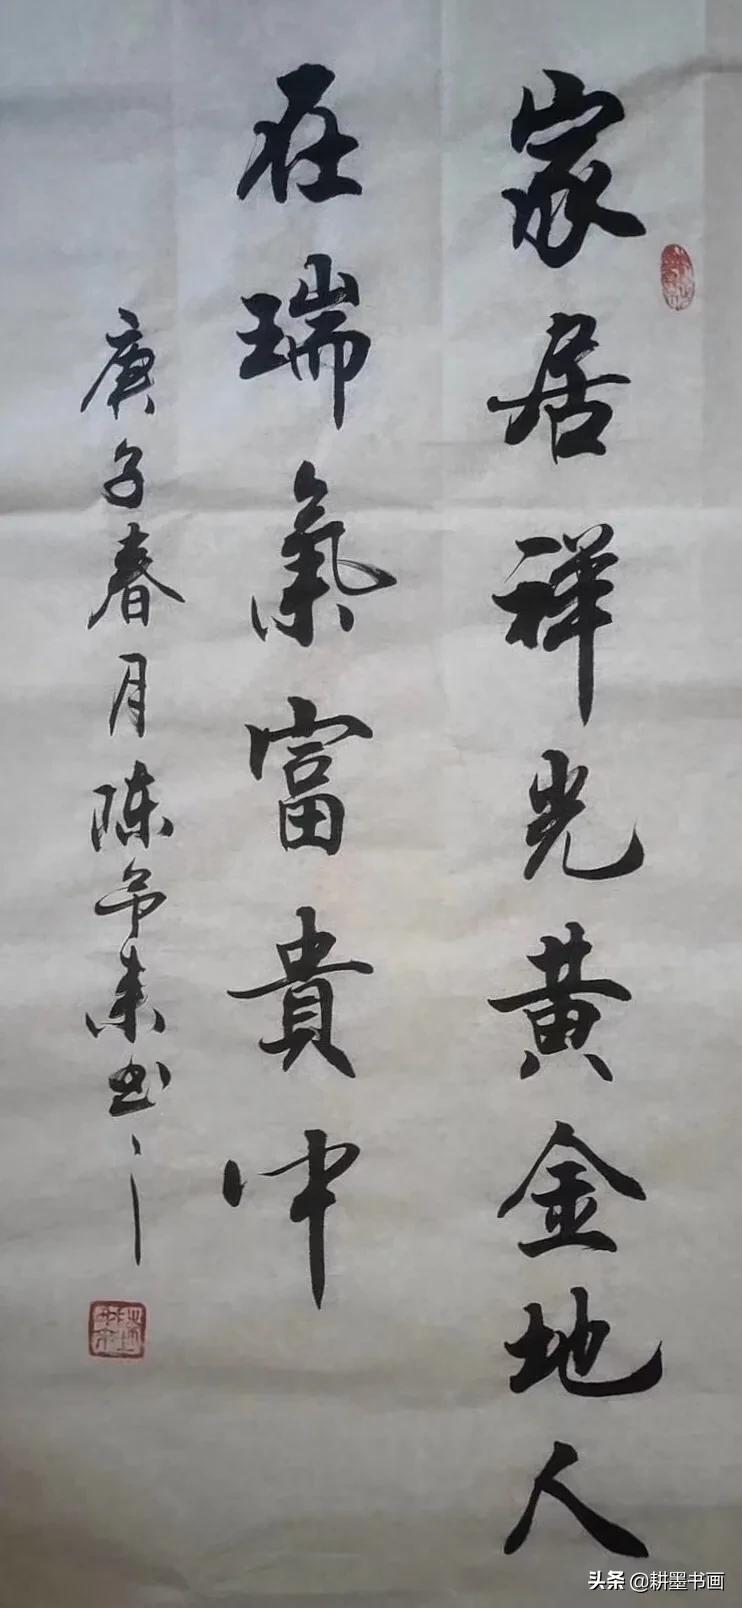 家居祥光黄金地人
在瑞氣富貴中
庚子春月陈
书
头条 @耕墨书画